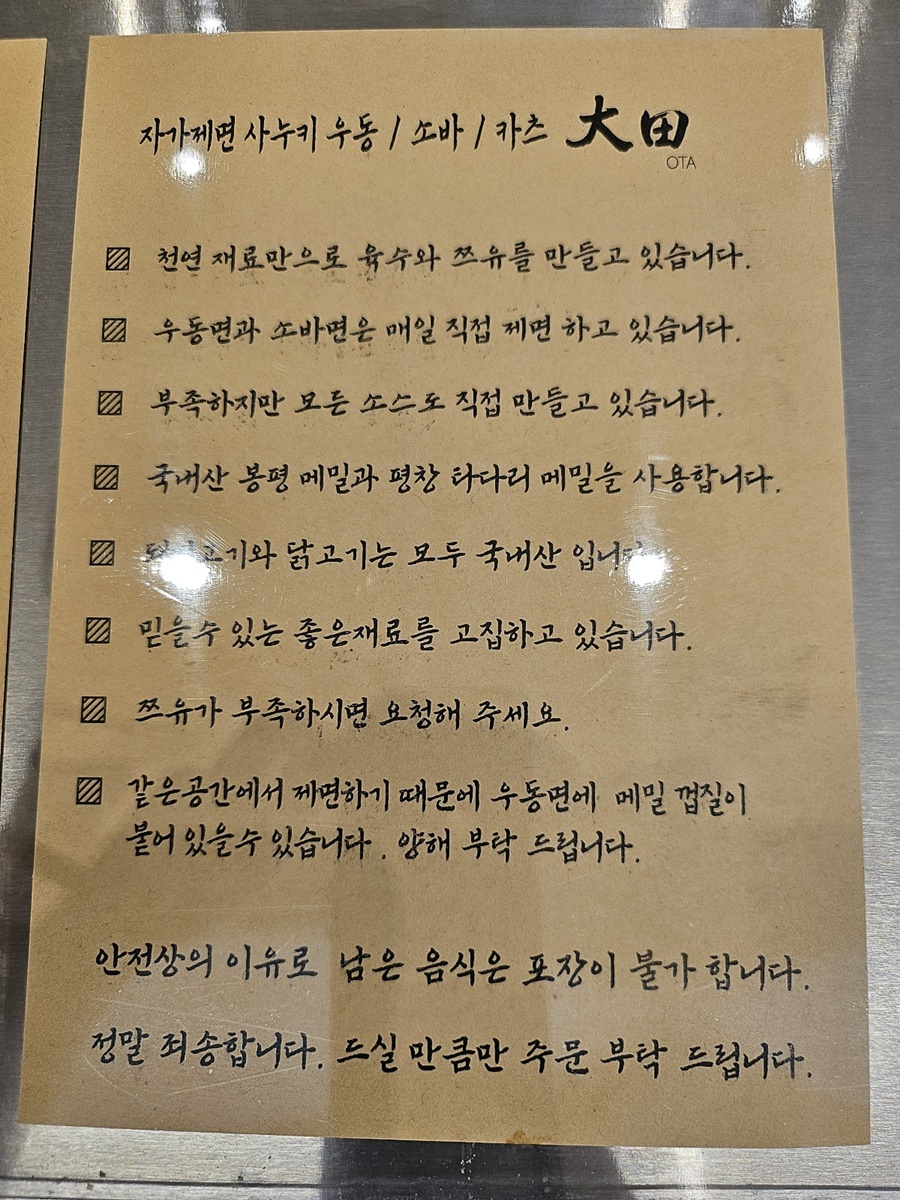 자가제면 사누키 우동 / 소바 / 카츠 大田
OTA
천연 재료만으로 육수와 쯔유를 만들고 있습니다.
우동면과 소바면은 매일 직접 제면 하고 있습니다.
부족하지만 모든 소스도 직접 만들고 있습니다.
국내산 봉평 메밀과 평창 타다리 메밀을 사용합니다.
돼지고기와 닭고기는 모두 국내산 입니다.
믿을수 있는 좋은재료를 고집하고 있습니다.
쯔유가 부족하시면 요청해 주세요.
같은공간에서 제면하기 때문에 우동면에 메밀 껍질이
붙어 있을수 있습니다. 양해 부탁 드립니다.
안전상의 이유로 남은 음식은 포장이 불가 합니다.
정말 죄송합니다. 드실 만큼만 주문 부탁 드립니다.